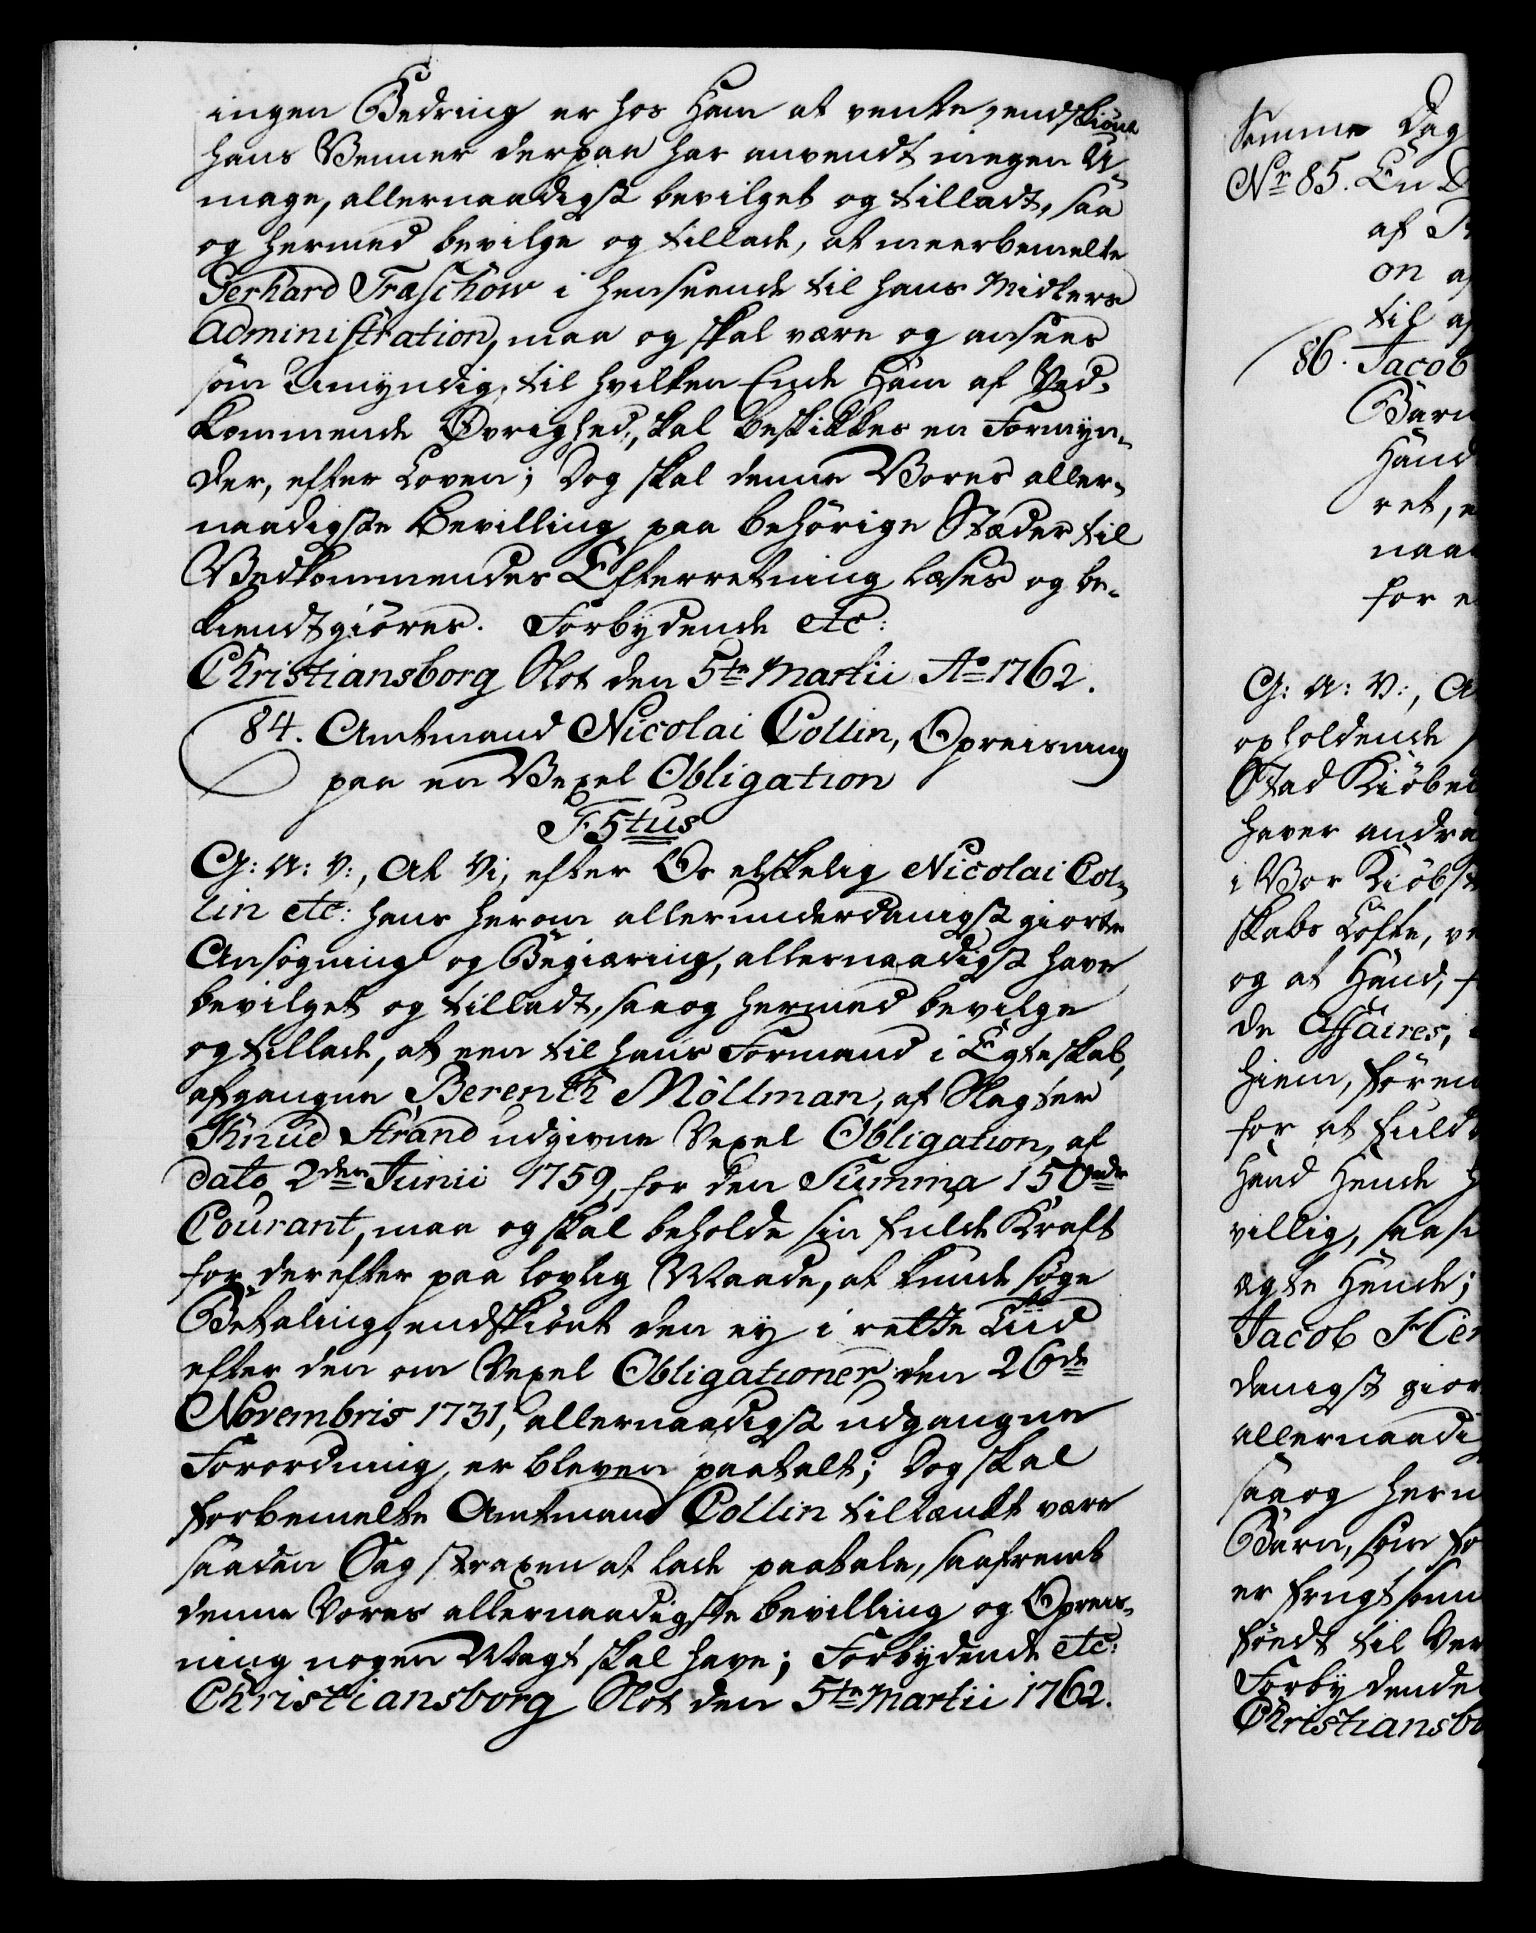 ingen Bedring er hos Ham at vente, endskiönt
hans Venner derpaa har anvendt megen U-
mage, allernaadigst bevilget og tilladt, saa
og hermed bevilge og tillade, at meerbemelte
Gerhard Træschow i henseende til hans Midlers
Administration, maa og skal være og ansees
som Umyndig, til hvilken Ende Ham af Ved-
kommende Øvrighed, skal beskikkes en Formyn-
der, efter Loven; Dog skal denne Vores aller-
naadigste Bevilling paa behörige Stæder til
Vedkommendes Efterretning læses og be-
kiendtgiöres. Forbydende etc:
Christiansborg Slot den 5te Martii Ao 1762.
84. Amtmand Nicolai Collin, Opreisning
paa en Vexel Obligation
F. 5tus
G: A: V:, At Vi, efter Os elskelig Nicolai Col-
lin etc: hans herom allerunderdanigst giorte
Ansögning og Begiæring, allernaadigst have
bevilget og tilladt, saa og hermed bevilge
og tillade, at een til hans Formand i Egteskab,
afgangne Berenth Möllman, af Slagter
Knud Strand udgivne Vexel Obligation, af
dato 2den Junii 1759, for den Summa 150 rdr
Courant, maa og skal beholde sin fulde Kraft
for derefter paa lovlig Maade, at kunde söge
Betaling, endskiönt den ey i rette Tiid
efter den om Vexel Obligationer den 26de
Novembris 1731, allernaadigst udgangne
Forordning, er bleven paatalt; Dog skal
forbemelte Amtmand Collin tiltænkt være
saadan Sag straxen at lade paatale, saafremt
denne Vores allernaadigste bevilling og Opreis-
ning nogen Magt skal have; Forbydende etc:
Christiansborg Slot den 5te Martii 1762.
Samme Dag
Nr. 85. En
af
on
til
86. Jacob
Barn
Hand
ret,
naa
for
G: A: V:,
opholdende
Stad Kiöben
haver andra
i Vor Kiöbst
skabs Löfte,
og at Hand,
de Affaires,
hiem,
for at fuld
Hand Hende
villig, saa
ægte Hende;
Jacob
danigst gior
allernaadi
saa og herm
Barn, som
er frugtsom
födt til
Forbydende
Christiansbo